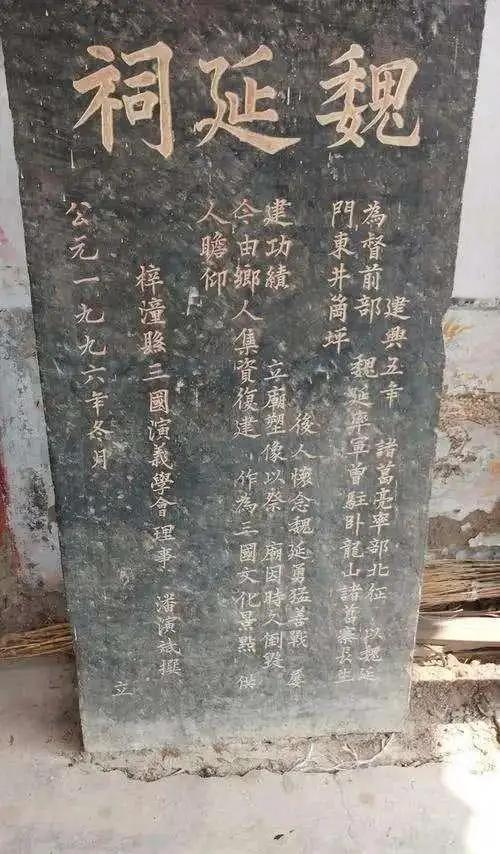 魏延祠
建興五年 諸葛亮率部北征 以魏延
為督前部 魏延率軍曾駐卧龍山諸葛寨長生
門東井崗坪
後人懷念魏延勇猛善戰 屡
建功績 立廟塑像以祭 廟因時久倒毀
今由鄉人集資復建 作為三國文化景點 供
人瞻仰
梓潼縣三國演義學會理事 潘演斌撰
公元一九九六年冬月 立